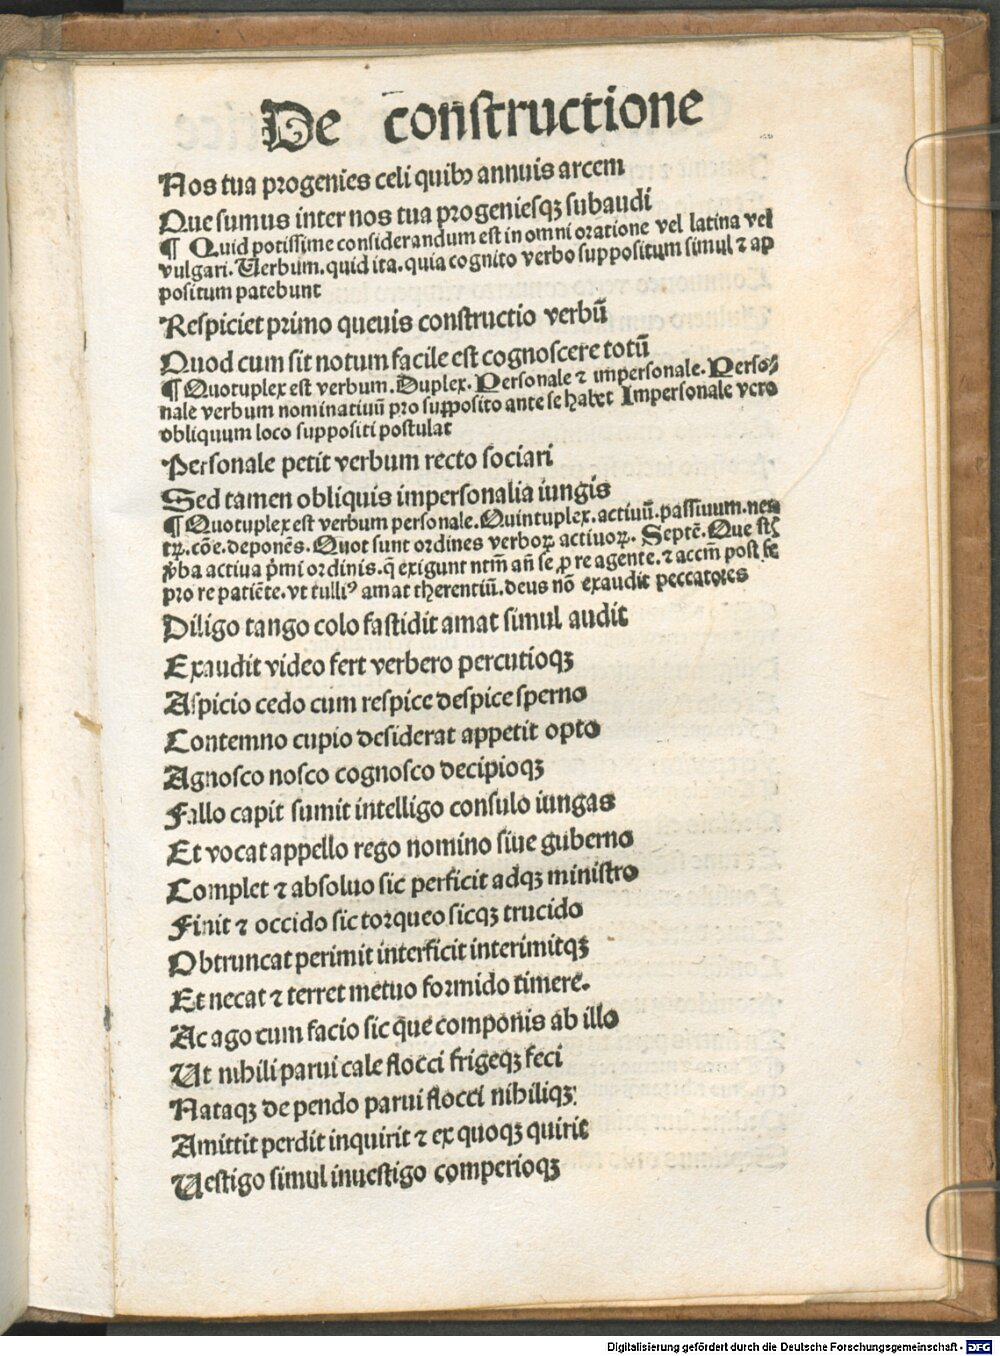 De constructione
Nos tua progenies celi quibꝰ annuis arcem
Que sumus inter nos tua progeniesqꝫ subaudi
¶ Quid potissime considerandum est in omni oratione vel latina vel
vulgari. Uerbum. quid ita. quia cognito verbo suppositum simul ⁊ ap
positum patebunt
Respiciet primo queuis constructio verbū
Quod cum sit notum facile est cognoscere totū
¶ Quotuplex est verbum. Duplex. Personale ⁊ impersonale. Perso⸗
nale verbum nominatiuū pro supposito ante se habet Impersonale vero
obliquum loco suppositi postulat
Personale petit verbum recto sociari
Sed tamen obliquis impersonalia iungis
¶ Quotuplex est verbum personale. Quintuplex. actiuū. passiuum. neu
trꝝ. cōe. deponēs. Quot sunt ordines verboꝝ actiuoꝝ. Septē. Que st̄
v̄ba actiua p̄mi ordinis. q̄ exigunt ntm̄ an̄ se ꝓ re agente. ⁊ accm̄ post se
pro re patiēte. vt tulliꝰ amat therentiū. deus nō exaudit peccatores
Diligo tango colo fastidit amat simul audit
Exaudit video fert verbero percutioqꝫ
Aspicio cedo cum respice despice sperno
Contemno cupio desiderat appetit opto
Agnosco nosco cognosco decipioqꝫ
Fallo capit sumit intelligo consulo iungas
Et vocat appello rego nomino siue guberno
Complet ⁊ absoluo sic perficit adqꝫ ministro
Finit ⁊ occido sic torqueo sicqꝫ trucido
Obtruncat perimit interficit interimitqꝫ
Et necat ⁊ terret metuo formido timere.
Ac ago cum facio sic que componis ab illo
Ut nihili parui cale flocci frigeqꝫ feci
Nataqꝫ de pendo parui flocci nihiliqꝫ:
Amittit perdit inquirit ⁊ ex quoqꝫ quirit
Uestigo simul inuestigo comperioqꝫ
Digitalisierung gefördert durch die Deutsche Forschungsgemeinschaft - DFG